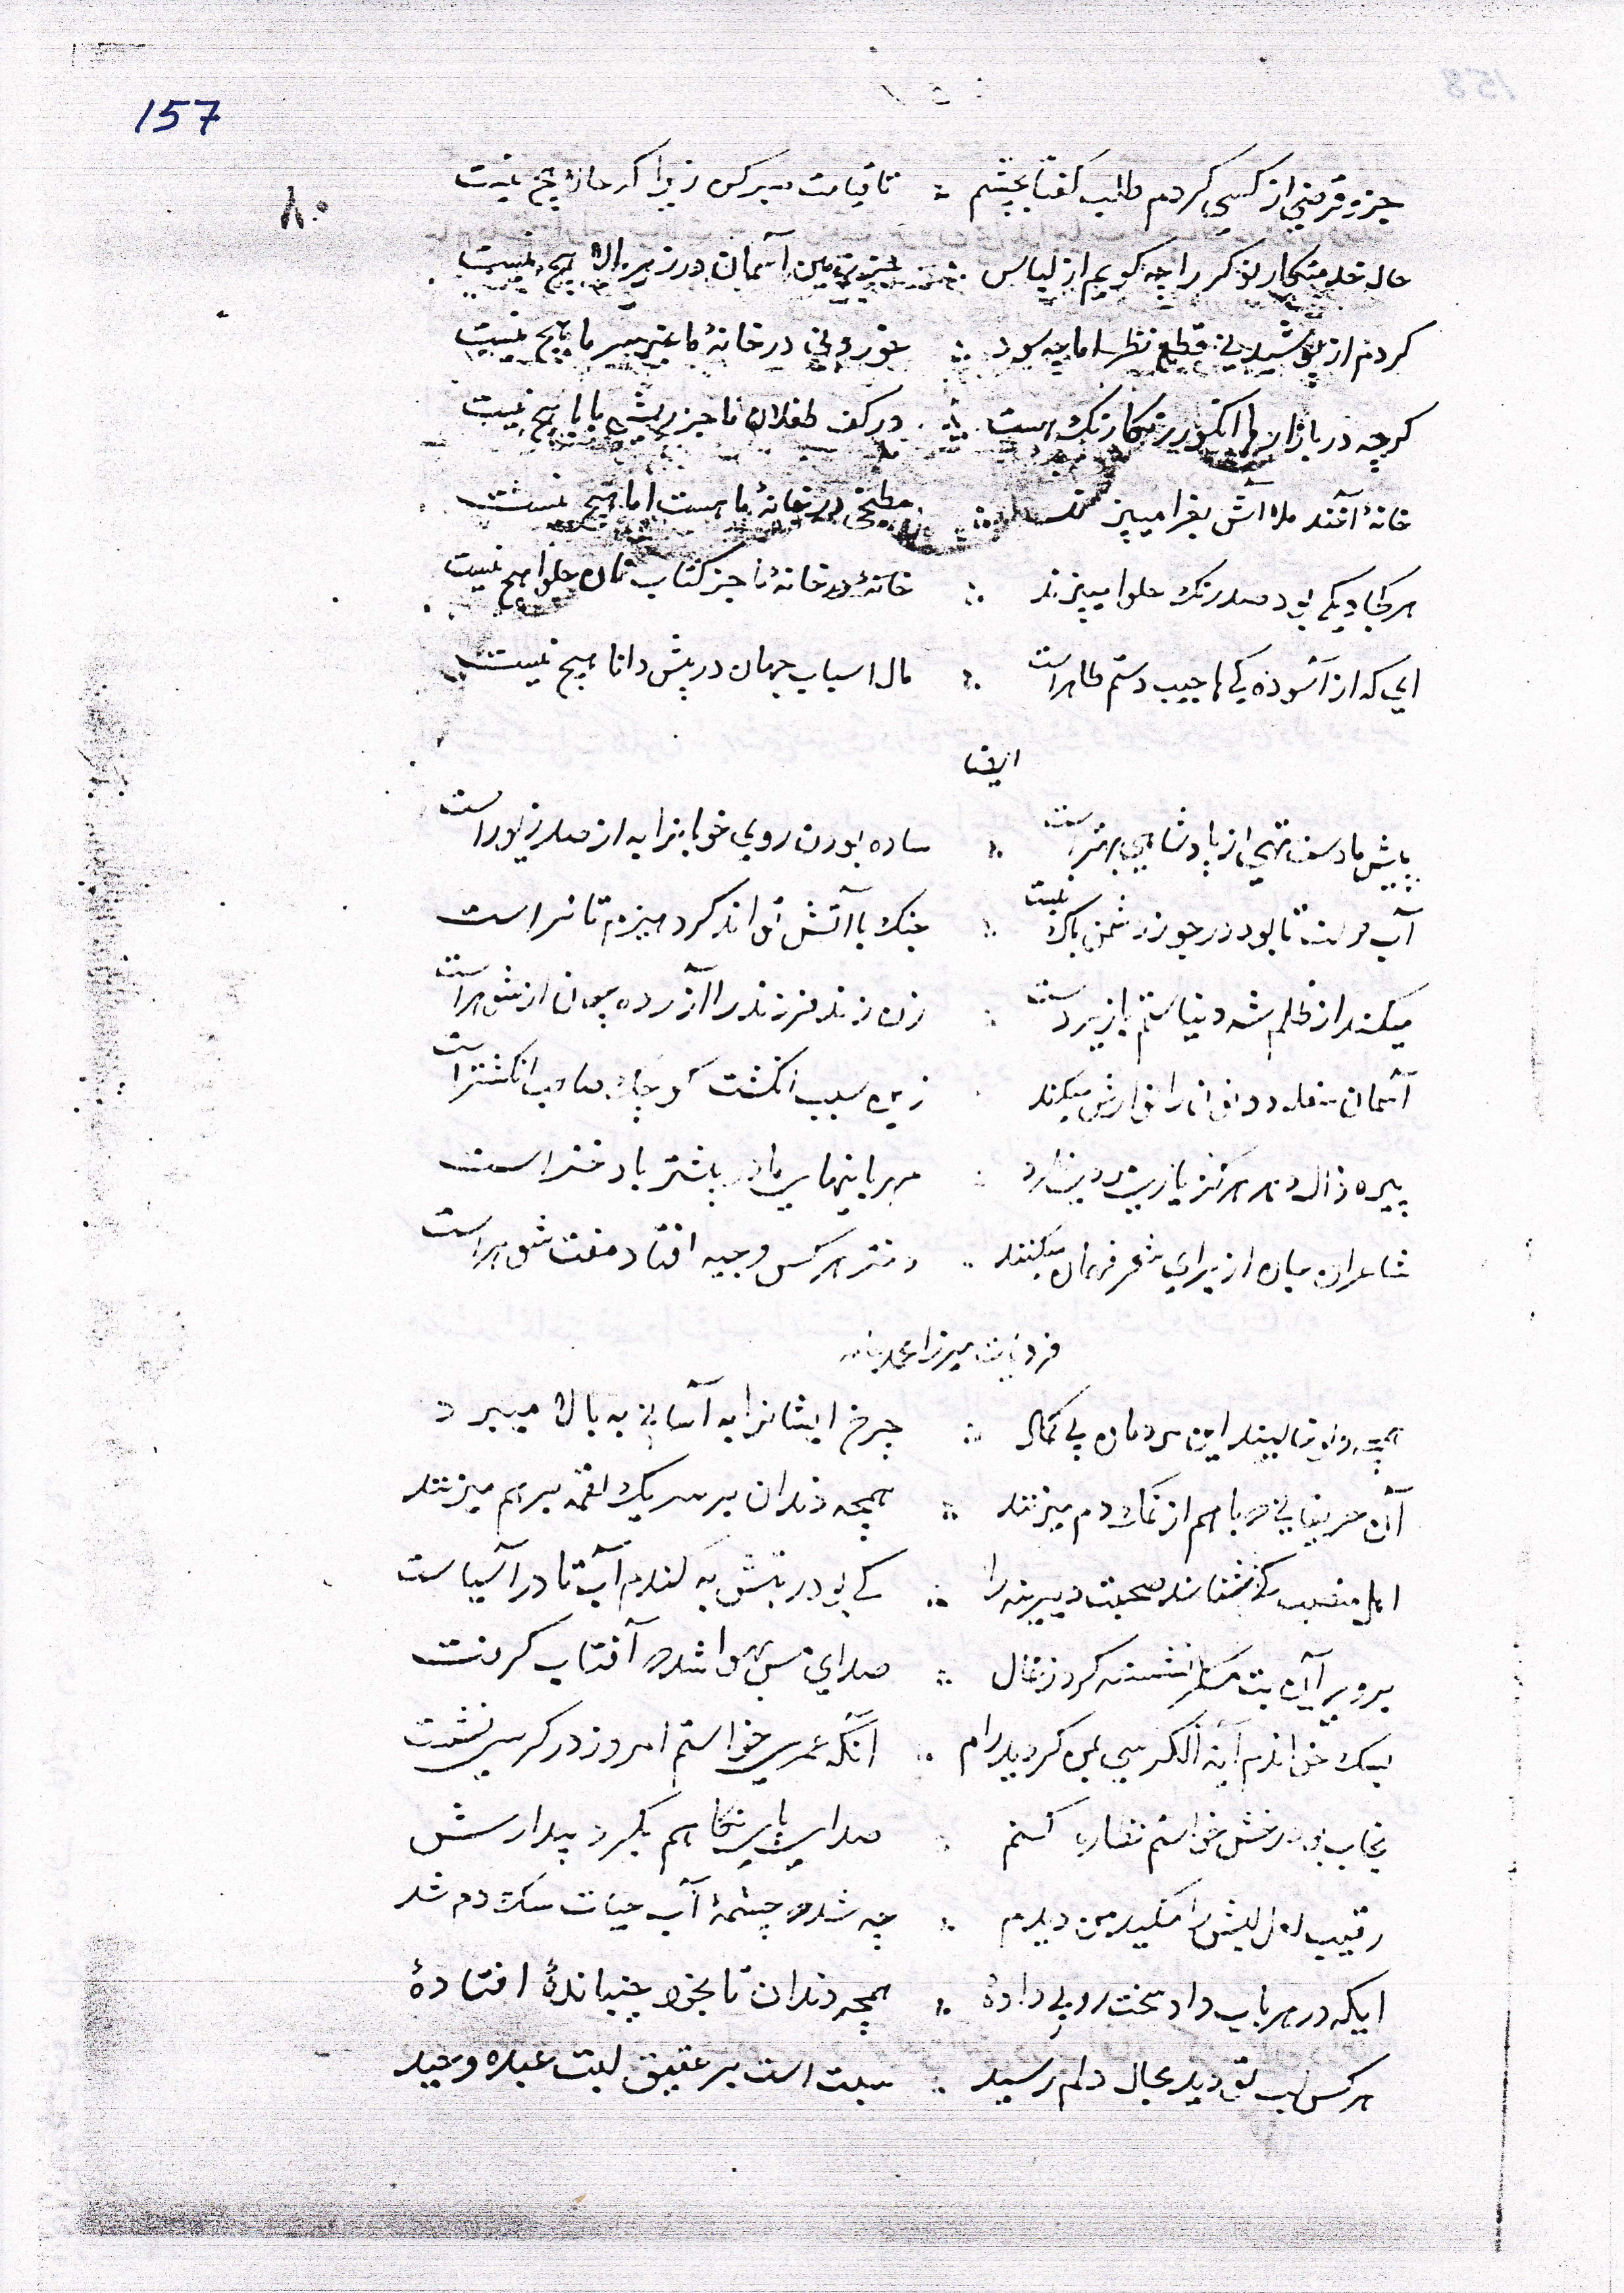 157
۸۰
جزو قرضی از کسی کردم طلب کفتا بچشم ∴ تا قیامت صبر کن زیرا که حالا هیچ نیست
حال خدمتکار نوکر را چه کویم از لباس ∴ جز زمین آسمان در زیر بالا هیچ نیست
کردم از پوشیدنی قطع نظر اما چه سود ∴ خوردنی در خانهٔ ما غیر سرما هیچ نیست
کرچه در بازارها انکور رنکارنک هست ∴ در کف طفلان ما جز ریش بابا هیچ نیست
خانهٔ آخند ملا آش بغرا میپزند ∴ مطبخی در خانهٔ ما هست اما هیچ نیست
هر کجا دیکی بود صد رنک حلوا میپزند ∴ خانهٔ در خانهٔ ما جز کتاب نان حلوا هیچ نیست
ای که از آسوده کی ها جیب دستم ظاهر است ∴ مال اسباب جهان در پیش دانا هیچ نیست
ایضا
پیش ما دست تهی از پادشاهی برتر است ∴ ساده بودن روی خوبانرا به از صد زیور است
آب دولت تا بود در جو ز دشمن باک نیست ∴ جنک با آتش تواند کرد هیزم تا تر است
میکند از ظلم شه دنیا ستم بر زیردست ∴ زن زند فرزند را آزرده چون از شوهر است
آسمان سفله دونان را نوازش میکند ∴ زین سبب انکشت کوچک صاحب انکشتر است
پیره زال دهر هرکز یار مردی ندارد ∴ مهربانیهای مادر بیشتر با دختر است
شاعران جان از برای شعر فهمان میکنند ∴ دختر هر کس وجیه افتاد مفت شوهر است
فردیات میرزا
چون نالیند این مردمان بی کمال ∴ چرخ ایشانرا به آسانی به بالا میبرد
آن حریفانی که با هم از نمک دم میزنند ∴ همچه دندان بر سر یک لقمه بر هم میزنند
اهل منصب کی شناسند صحبت دیرینه را ∴ کی بود ربطش به کندم آب تا در آسیاست
برو بر آن بت نشسته کرد زغال ∴ صدای مس وا شده آفتاب کرفت
بسک خواندم آیة الکرسی بمن کردید رام ∴ آنکه عمری خواستم امروز در کرسی نشست
بخواب بود رخش خواستم نظاره کنم ∴ صدای پای نکاهم بکرد بیدارش
رقیب لعل لبش را مکید من دیدم ∴ چه شد که چشمهٔ آب حیات سک دم شد
ایکه در هر باب داد سخت رویی دادهٔ ∴ همچه دندان تا بخود جنبیاندهٔ افتادهٔ
هر کس لب تو دید بحال دلم رسید ∴ ثبت است بر عقیق لبت عبده وحید